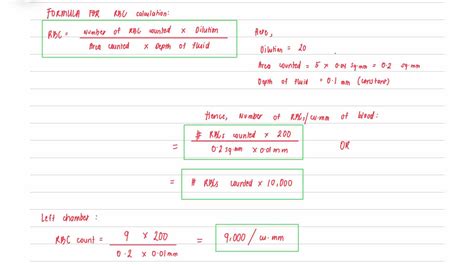 FORMULA FOR RBC calculation:
RBC = Number of RBC counted x Dilution / Area counted x Depth of fluid
Here,
Dilution = 20
Area counted = 5 x 0.04 sq.mm = 0.2 sq.mm
Depth of fluid = 0.1 mm (constant)
Hence, Number of RBCs/cu.mm of blood:
= # RBCs counted x 200 / 0.2 sq.mm x 0.01mm OR
= # RBCs counted x 10,000
Left chamber:
RBC count = 9 x 200 / 0.2 x 0.01mm = 9,000 / cu.mm